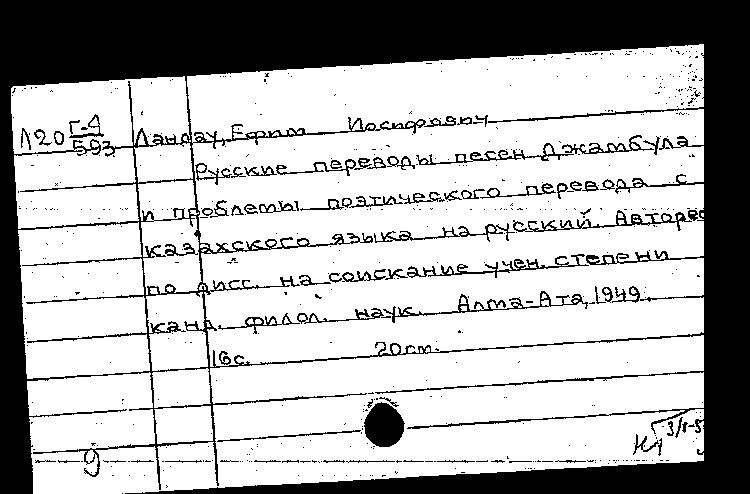 Л20 Г-Д Ландау, Ефим Иосифович
593
Русские переводы песен Джамбула
и проблемы поэтического перевода с
казахского языка на русский. Авторе
по дисс. на соискание учен. степени
канд. филол. наук. Алма-Ата, 1949.
16с. 20см.
9